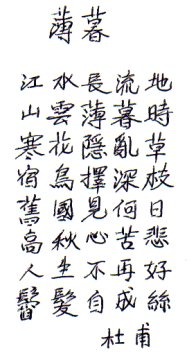 薄暮
江水長流地
山雲薄暮時
寒花隱亂草
宿鳥擇深枝
舊國見何日
高秋心苦悲
人生不再好
鬢髮自成絲
杜甫